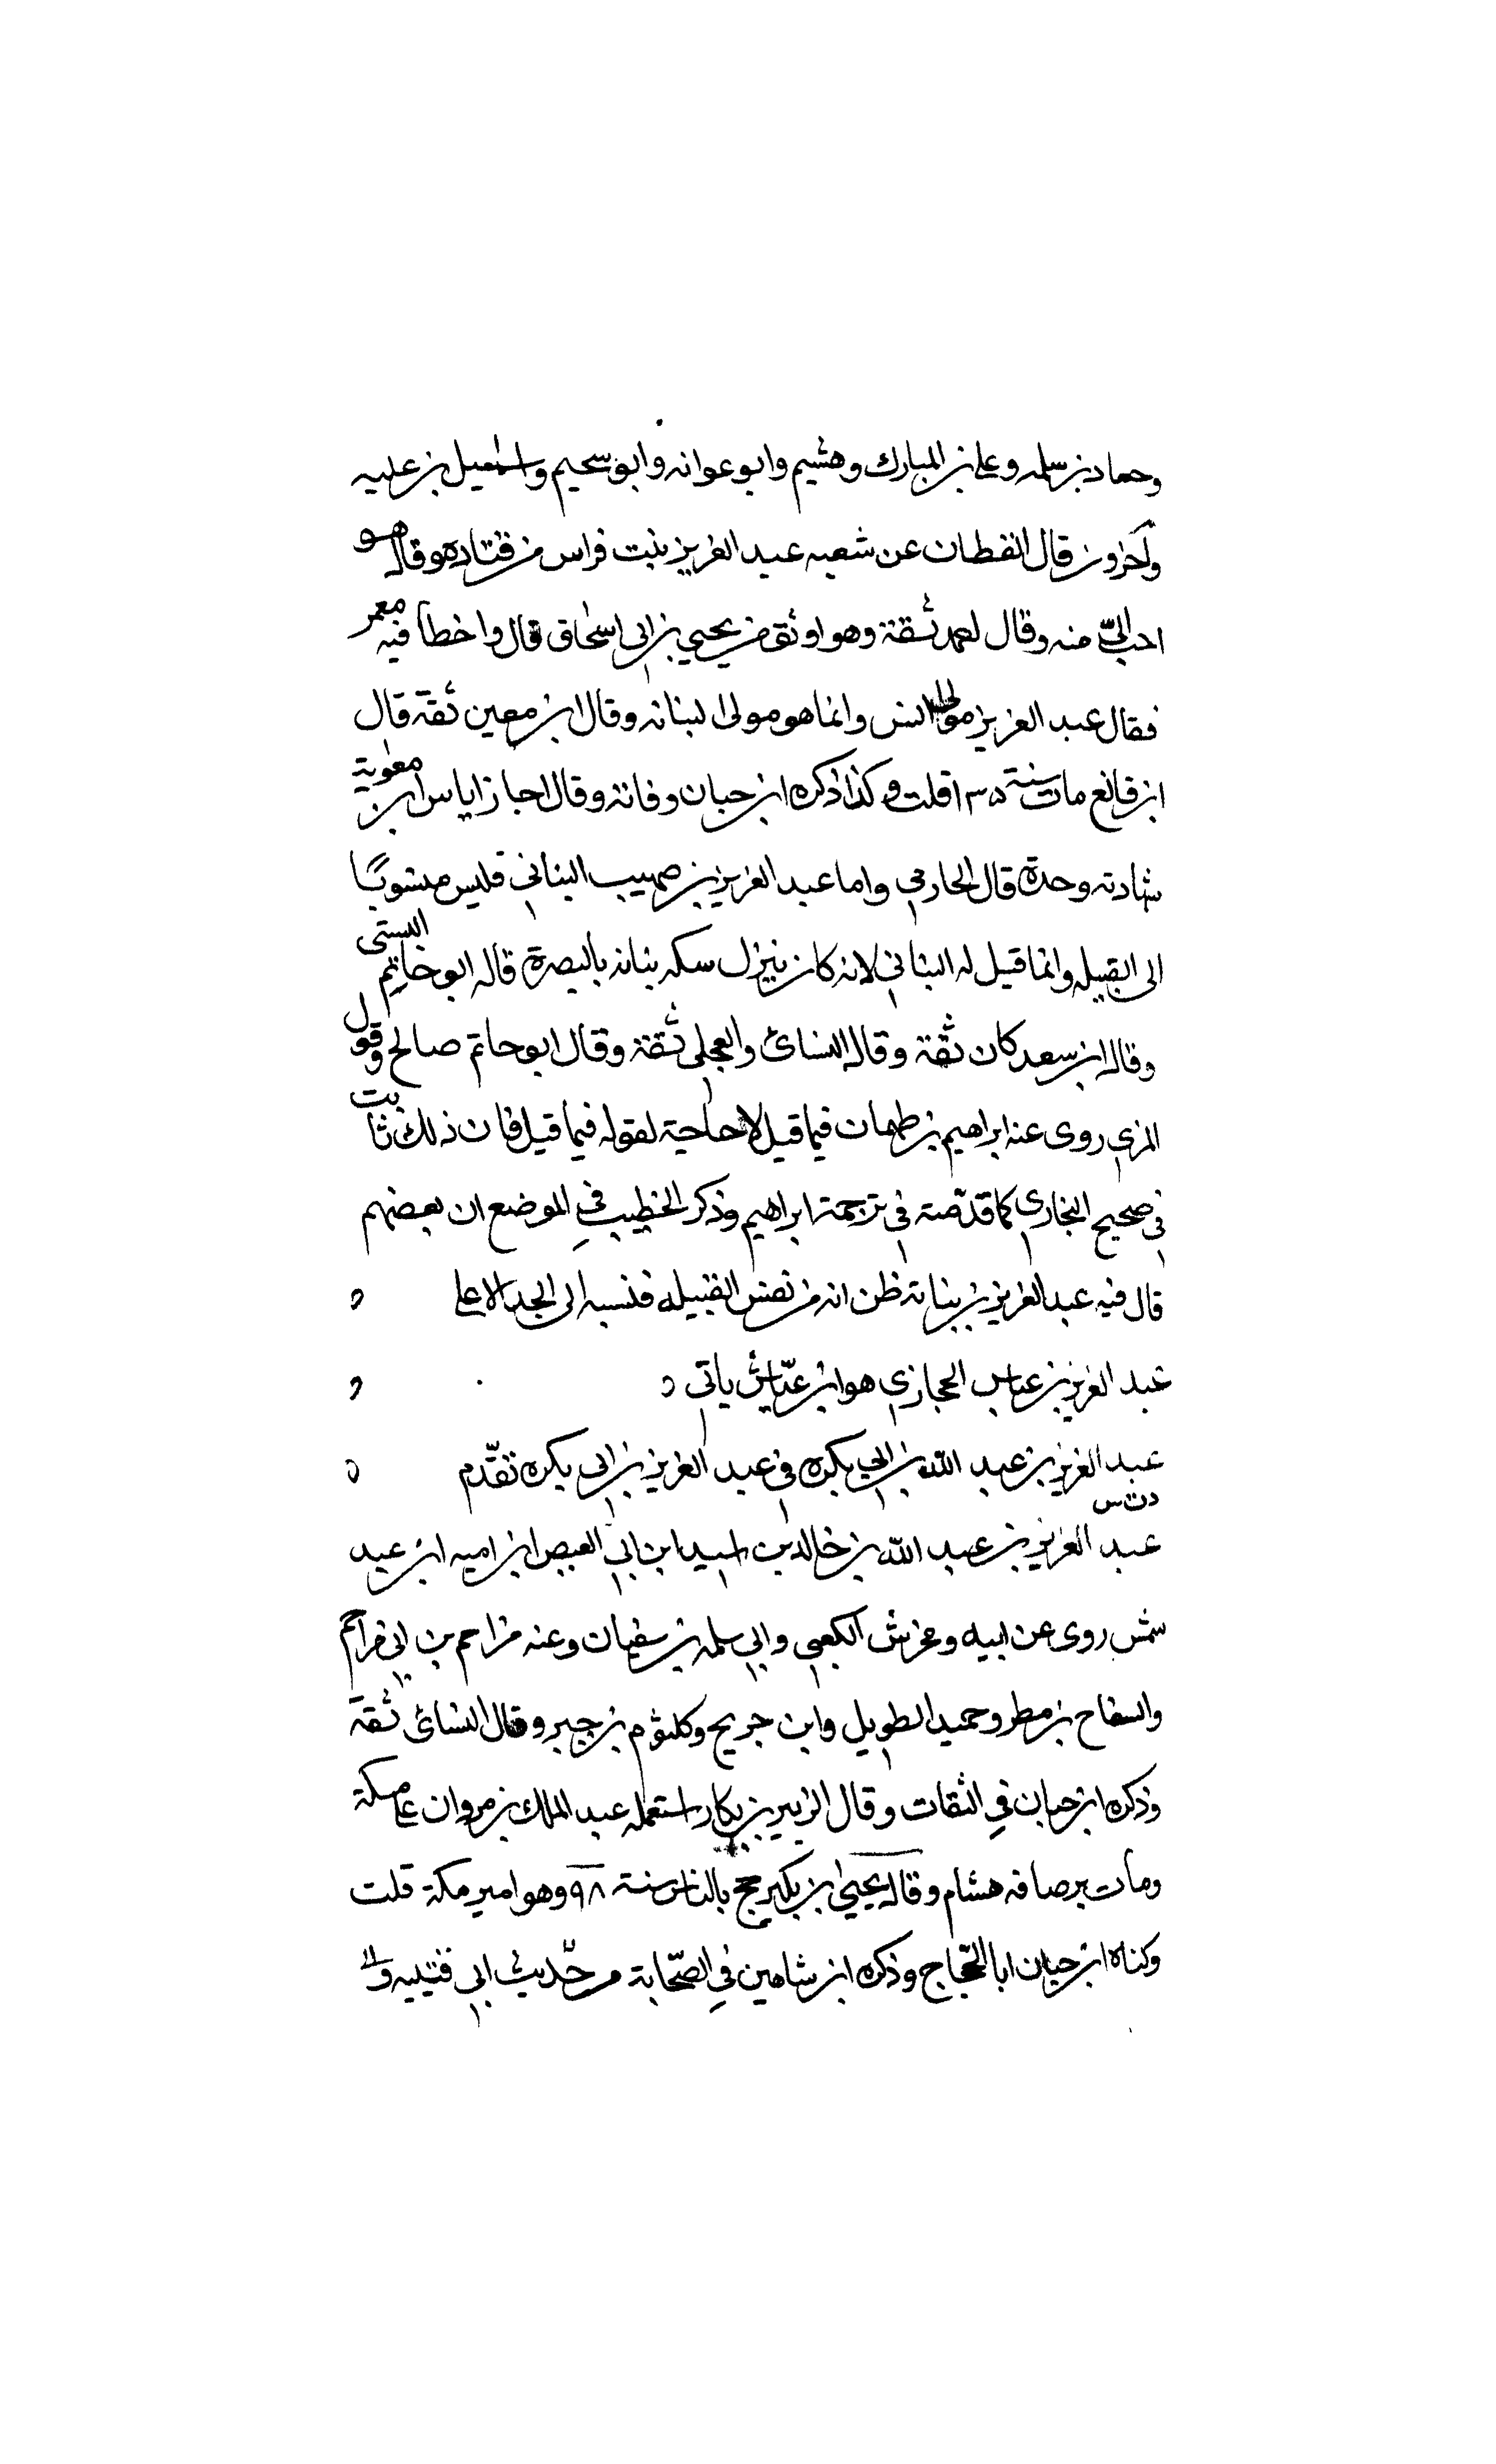 وحماد بن سلمه وعلي بن المبارك وهشيم وابو عوانه وابو سحيم واسمعيل بن عليه
وآخرون قال القطان عن شعبه عبد العزيز بنت فراس من قتاده وقال هو
احب اليّ منه وقال احمد ثقة وهو اوثق من يحيي بن ابي اسحاق قال واخطأ فيه معمر
فقال عبد العزيز مولى انس وانما هو مولى لبنانه وقال ابن معين ثقة قال
ابن قانع مات سنة ١٣٥ قلت وكذا ذكره ابن حبان وفاته وقال اجاز اياس ابن معوية
شهادته وحدة قال الحازمي واما عبد العزيز بن صهيب البناني فليس منسوبًا
الى القبيله وانما قيل له البناني لانه كان ينزل سكه بنانه بالبصرة قاله ابو حاتم البستي
وقال ابن سعد كان ثقة وقال النسائ والعجلي ثقة وقال ابو حاتم صالح وقول
المزي روى عنه ابراهيم بن طهمان فيما قيل لا حاجة لقوله فيما قيل فان ذلك ثابت
في صحيح البخاري كما قدّمته في ترجمة ابراهيم وذكر الخطيب في الموضع ان بعضهم
قال فيه عبد العزيز بن بنانه ظن انه من نفس القبيله فنسبه الى الجد الاعلى ه
عبد العزيز بن عباس الحجازي هو ابن عيّاش ياتي ه ه
عبد العزيز بن عبد الله بن ابي بكره في عبد العزيز بن ابي بكره تقدّم ه
د ت س
عبد العزيز بن عبد الله بن خالد بن اسيد ابن ابي العيص ابن اميه ابن عبد
شمس روى عن ابيه ومحرش الكعبي وابي سلمه بن سفيان وعنه مزاحم بن ابي مزاحم
والسفاح بن مطر وحميد الطويل وابن جريج وكلثوم بن جبر وقال النسائ ثقة
وذكره ابن حبان في الثقات وقال الزبير بن بكار استعمله عبد الملك بن مروان على مكة
ومات برصافه هشام وقال يحيى بن بكير حج بالناس سنة ٩٨ وهو امير مكة قلت
وكناه ابن حبان ابا الحجاج وذكره ابن شاهين في الصّحابة من حديث ابي قتيبه